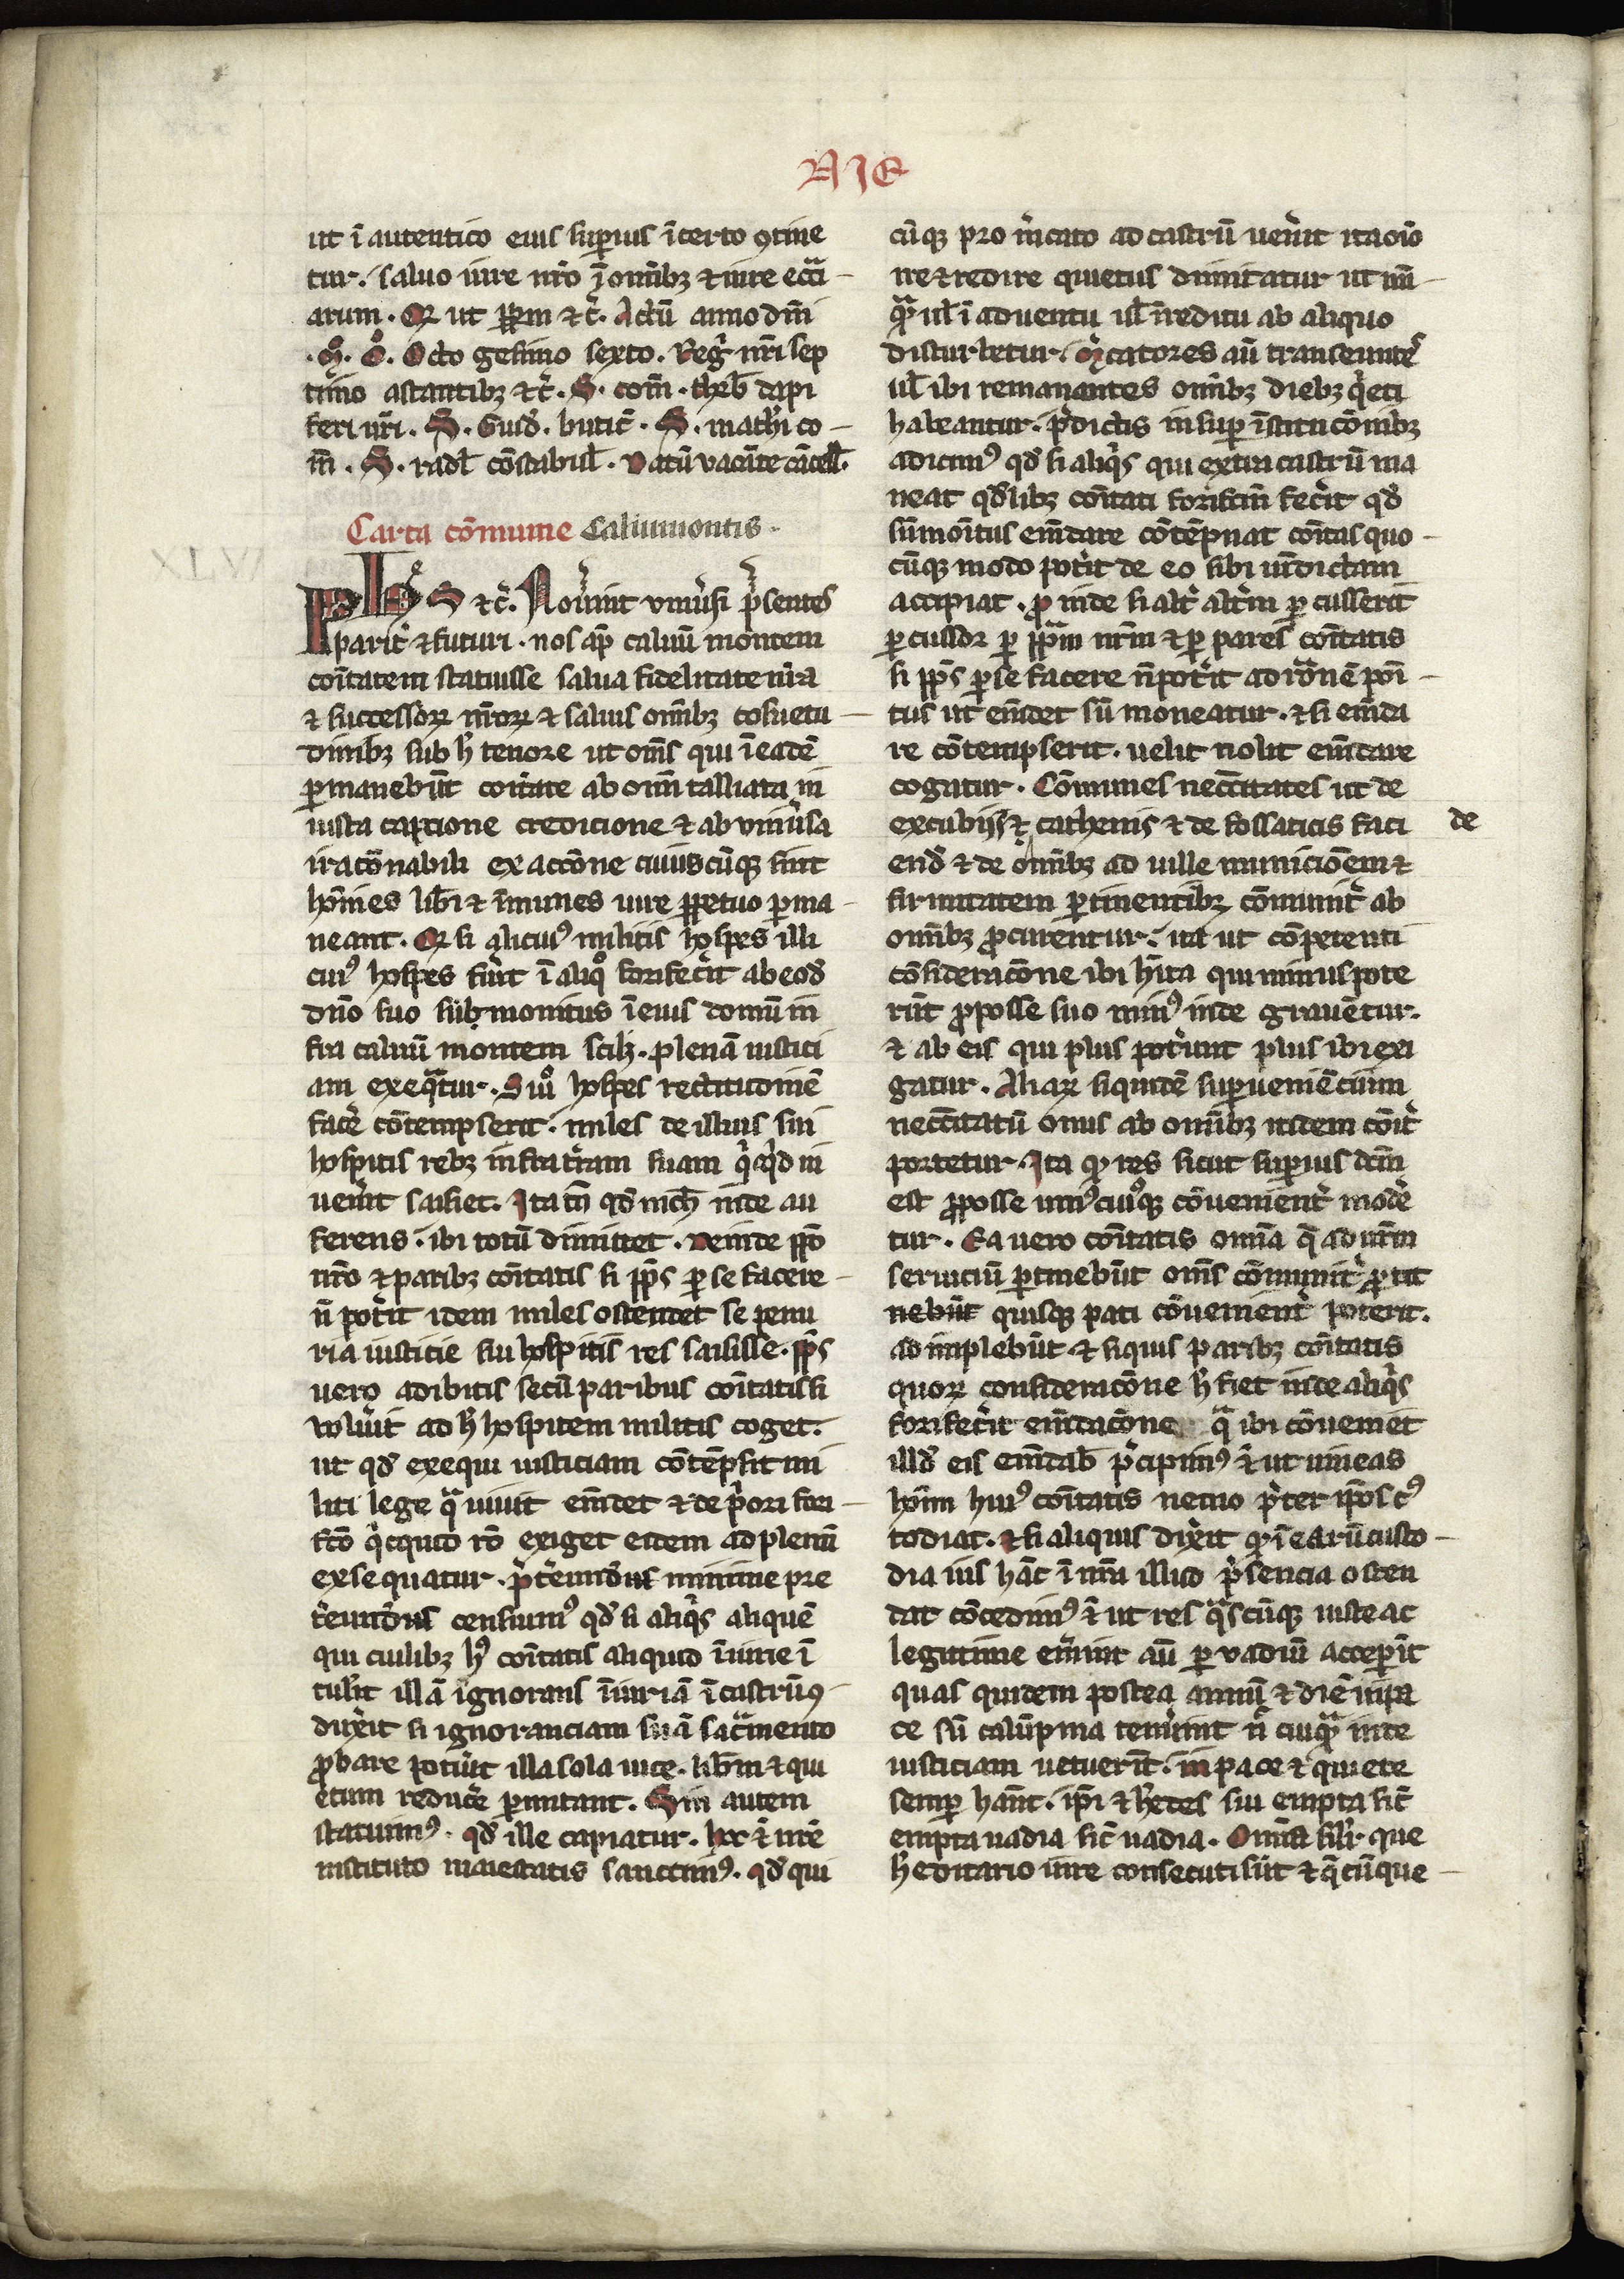 AIE
ut ī autentico eius suꝑius īcerto ꝯtine
tur. saluo iure nr̄o ī omībꝫ ⁊ iure ecc̄i
arum. Q̄ ut ꝑpm̄ ⁊c̄. Actū anno dn̄i
.M̊. C̊. Octo gesimo sexto. Regn̄ nr̄i sep
timo astantibꝫ ⁊c̄. S. com̄. theb̄ dapi
feri nr̄i. S. Guid̄. butic̄. S. math̄i co
m̄. S. radl̄ cōstabul̄. Datū vacāte cācell̄.
Carta cōmune Caluimontis.
Ph̄s ⁊c̄. Nouīnt vniūsi p̄sentes
parit̄ ⁊ futuri. nos ap̄ caluū montem
cōitatem statuisse salua fidelitate nr̄a
⁊ successoꝝ nr̄oꝝ ⁊ saluis omībꝫ cōsuetu
dinibꝫ sub h̄ tenore ut om̄s qui ī eadē
ꝑmanebūt cōitate ab om̄i talliata in
iusta captione credicione ⁊ ab vniūsa
iracōnabili exaccōne cuiuscūqꝫ sint
hōines lib̄i ⁊ īmunes iure ꝑpetuo ꝑma
neant. Q̄ si alicuiꝰ militis hospes illi
cuiꝰ hospes fūit ī aliqͦ forisfec̄it ab eod̄
dn̄o suo submonitus ī eius domū in
fra caluū montem scilꝫ. plenā iustici
am exeq̄tur. Si uͦ hospes rectitudinē
fac̄e cōtempserit. miles de illius sui
hospitis rebꝫ infra t̄ram suam qͥcq̄d in
uen̄it saisiet. Ita tn̄ qd̄ nich̄ inde au
ferens. ibi totū dimittet. Deinde ꝑp̄o
nr̄o ⁊ paribꝫ cōitatis si ꝑp̄s ꝑ se facere
n̄ pot̄it idem miles ostendet se penu
ria iusticie sui hospitis res saisisse. ꝑp̄s
uero adibitis secū paribus cōitatis si
voluīt ad h̄ hospitem militis coget.
ut qd̄ exequi iusticiam cōtēpsit mi
liti lege qͣ viuit emēdet ⁊ de p̄ori fori
fc̄o qͥcquid rō exiget eidem ad plenū
exsequatur. p̄t̄eundūs minime pre
t̄eundūs censuimꝰ qd̄ si aliqͥs aliquē
qui cuilibꝫ hꝰ cōitatis aliquid īiurie ī
tul̄it illā ignorans īiuriā ī castrū ꝯ
dux̄it si ignoranciam suā sacͣmento
ꝓbare potūit illa sola uice. lib̄m ⁊ qui
etum reduc̄e ꝑmittant. Sin autem
statuimꝰ. qd̄ ille capiatur. hoc ⁊̄ nr̄e
instituto maiestatis sanctimꝰ. qd̄ qui
cūqꝫ pro m̄cato ad castrū uen̄it ita eūd
ire ⁊ redire quietus dimittatur ut nū
qͣ ul̄ ī aduentu ul̄ ī reditu ab aliquo
disturbetur. M̄catores aū transeūnte⁹s
ul̄ ibi remanantes omībꝫ diebꝫ qͥeti
habeantur. p̄dictis insuꝑ īstitucōnibꝫ
adicimꝰ qd̄ si aliqͥs qui extra castrū ma
neat qd̄libꝫ cōitati forisfc̄m fec̄it qd̄
sūmonitus emēdare cōtēpnat cōitas quo
cūqꝫ modo pot̄it de eo sibi uīdictam
accipiat. ꝓinde si alt̄ alt̄m ꝑcusserit
ꝑcussor ꝑ ꝑp̄m nr̄m ⁊ ꝑ pares cōitatis
si ꝑp̄s ꝑ se facere n̄ pot̄it ad rōnē poī
tus ut emēdet sūmoneatur. ⁊ si emēda
re cōtempserit. uelit nolit emēdare
cogatur. Cōmunes nec̄citates ut de
excubiis ⁊ cathenis ⁊ de fossaticis faci
de
end̄ ⁊ de omībꝫ ad uille municiōem ⁊
firmitatem ꝑtinentibꝫ cōmunit̄ ab
omībꝫ ꝓcurentur. ita ut cōpetenti
cōsideracōne ibi hīta qui minus pote
rūt ꝓ posse suo minꝰ inde grauētur.
⁊ ab eis qui plus pot̄unt plus ibi exi
gatur. Aliaꝝ siquidē suꝑueniēcium
nec̄citatū onus ab omībꝫ itidem cōit̄
portetur. Ita qꝫ res sicut suꝑius dc̄m
est ꝓ posse uniꝰcuiꝰqꝫ cōuenient̄ mod̄e
tur. Ea uero cōitatis om̄ia q̄ ad nr̄m
seruiciū ꝑtinebūt om̄s cōmunit̄ ꝓ tit
nebūt quisqꝫ pati cōuenient̄ poterit.
ad implebūt ⁊ siquis paribꝫ cōitatis
quoꝝ consideracōne h̄ fiet inde aliqͥs
forisfec̄it emēdacōne qͣ ibi cōueniet
illd̄ eis emēdab̄ p̄cipimꝰ ⁊̄ ut uineas
hōim huiꝰ cōitatis nemo p̄ter ip̄os cꝰ
todiat. ⁊ si aliquis dix̄it qꝫ ī earū custo
dia ius hāt ī nr̄a illud p̄sencia osten
dat cōcedimꝰ ⁊̄ ut res qͣscūqꝫ iuste ac
legitime em̄int aū ꝑ vadiū accep̄it
quas quidem postea annū ⁊ diē in pa
ce sn̄ calūpnia tenūint n̄ cuiqͣ inde
iusticiam uetuerīt. in pace ⁊ quiete
semꝑ hāūt. ip̄i ⁊ h̄edes sui empta sic̄
empta uadia sic̄ uadia. Om̄ia sil̄r que
h̄editario iure consecuti sūt ⁊ q̄cūque